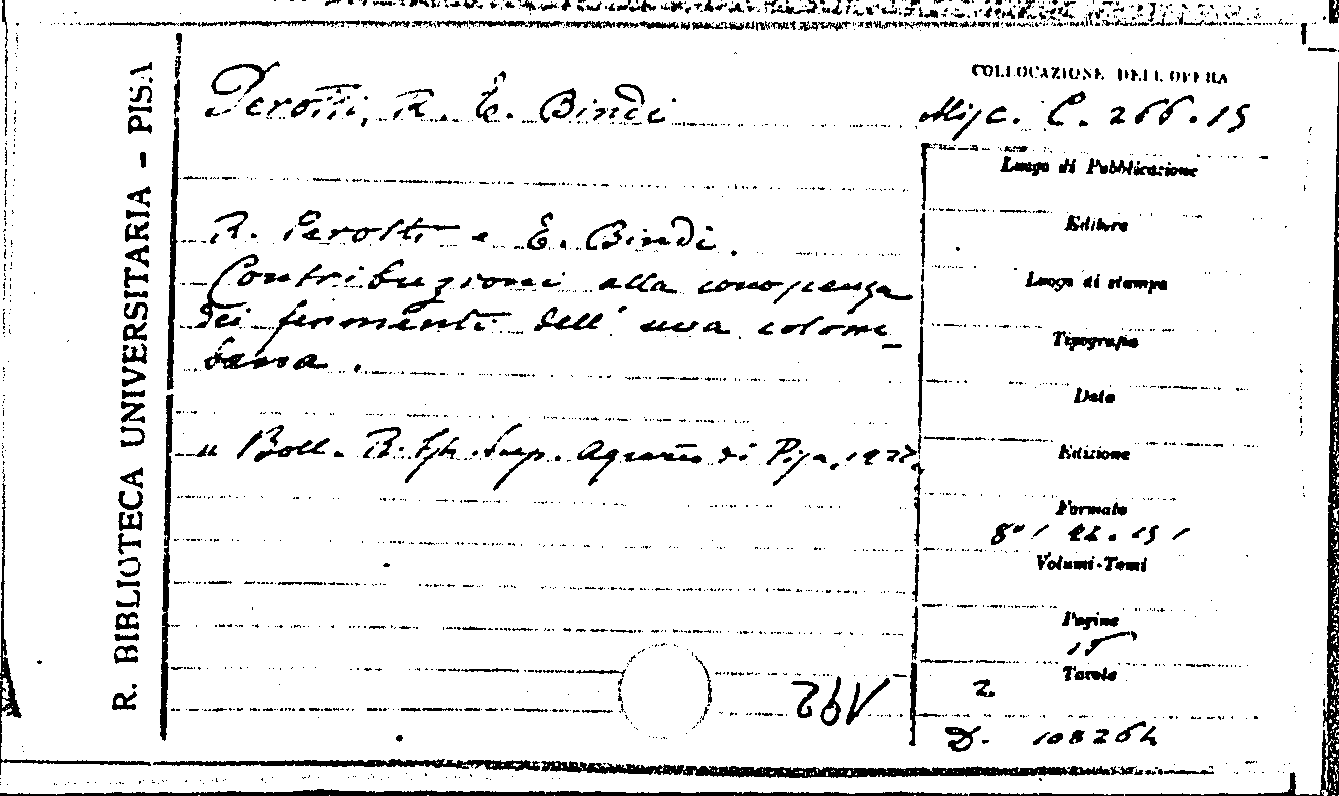 R. BIBLIOTECA UNIVERSITARIA - PISA
Perotti, R. E. Bindi
R. Perotti e E. Bindi.
Contribuzioni alla conoscenza
dei fermenti dell' uva colom-
bana.
Boll. R. Ist. Sup. Agrario di Pisa,
COLLOCAZIONE DELL'OPERA
Misc. C. 266.15
Luogo di Pubblicazione
Editore
Luogo di stampa
Tipografia
Data
Edizione
Formato
8º
Volumi-Tomi
Pagine
15
Tavole
2
D. 108264